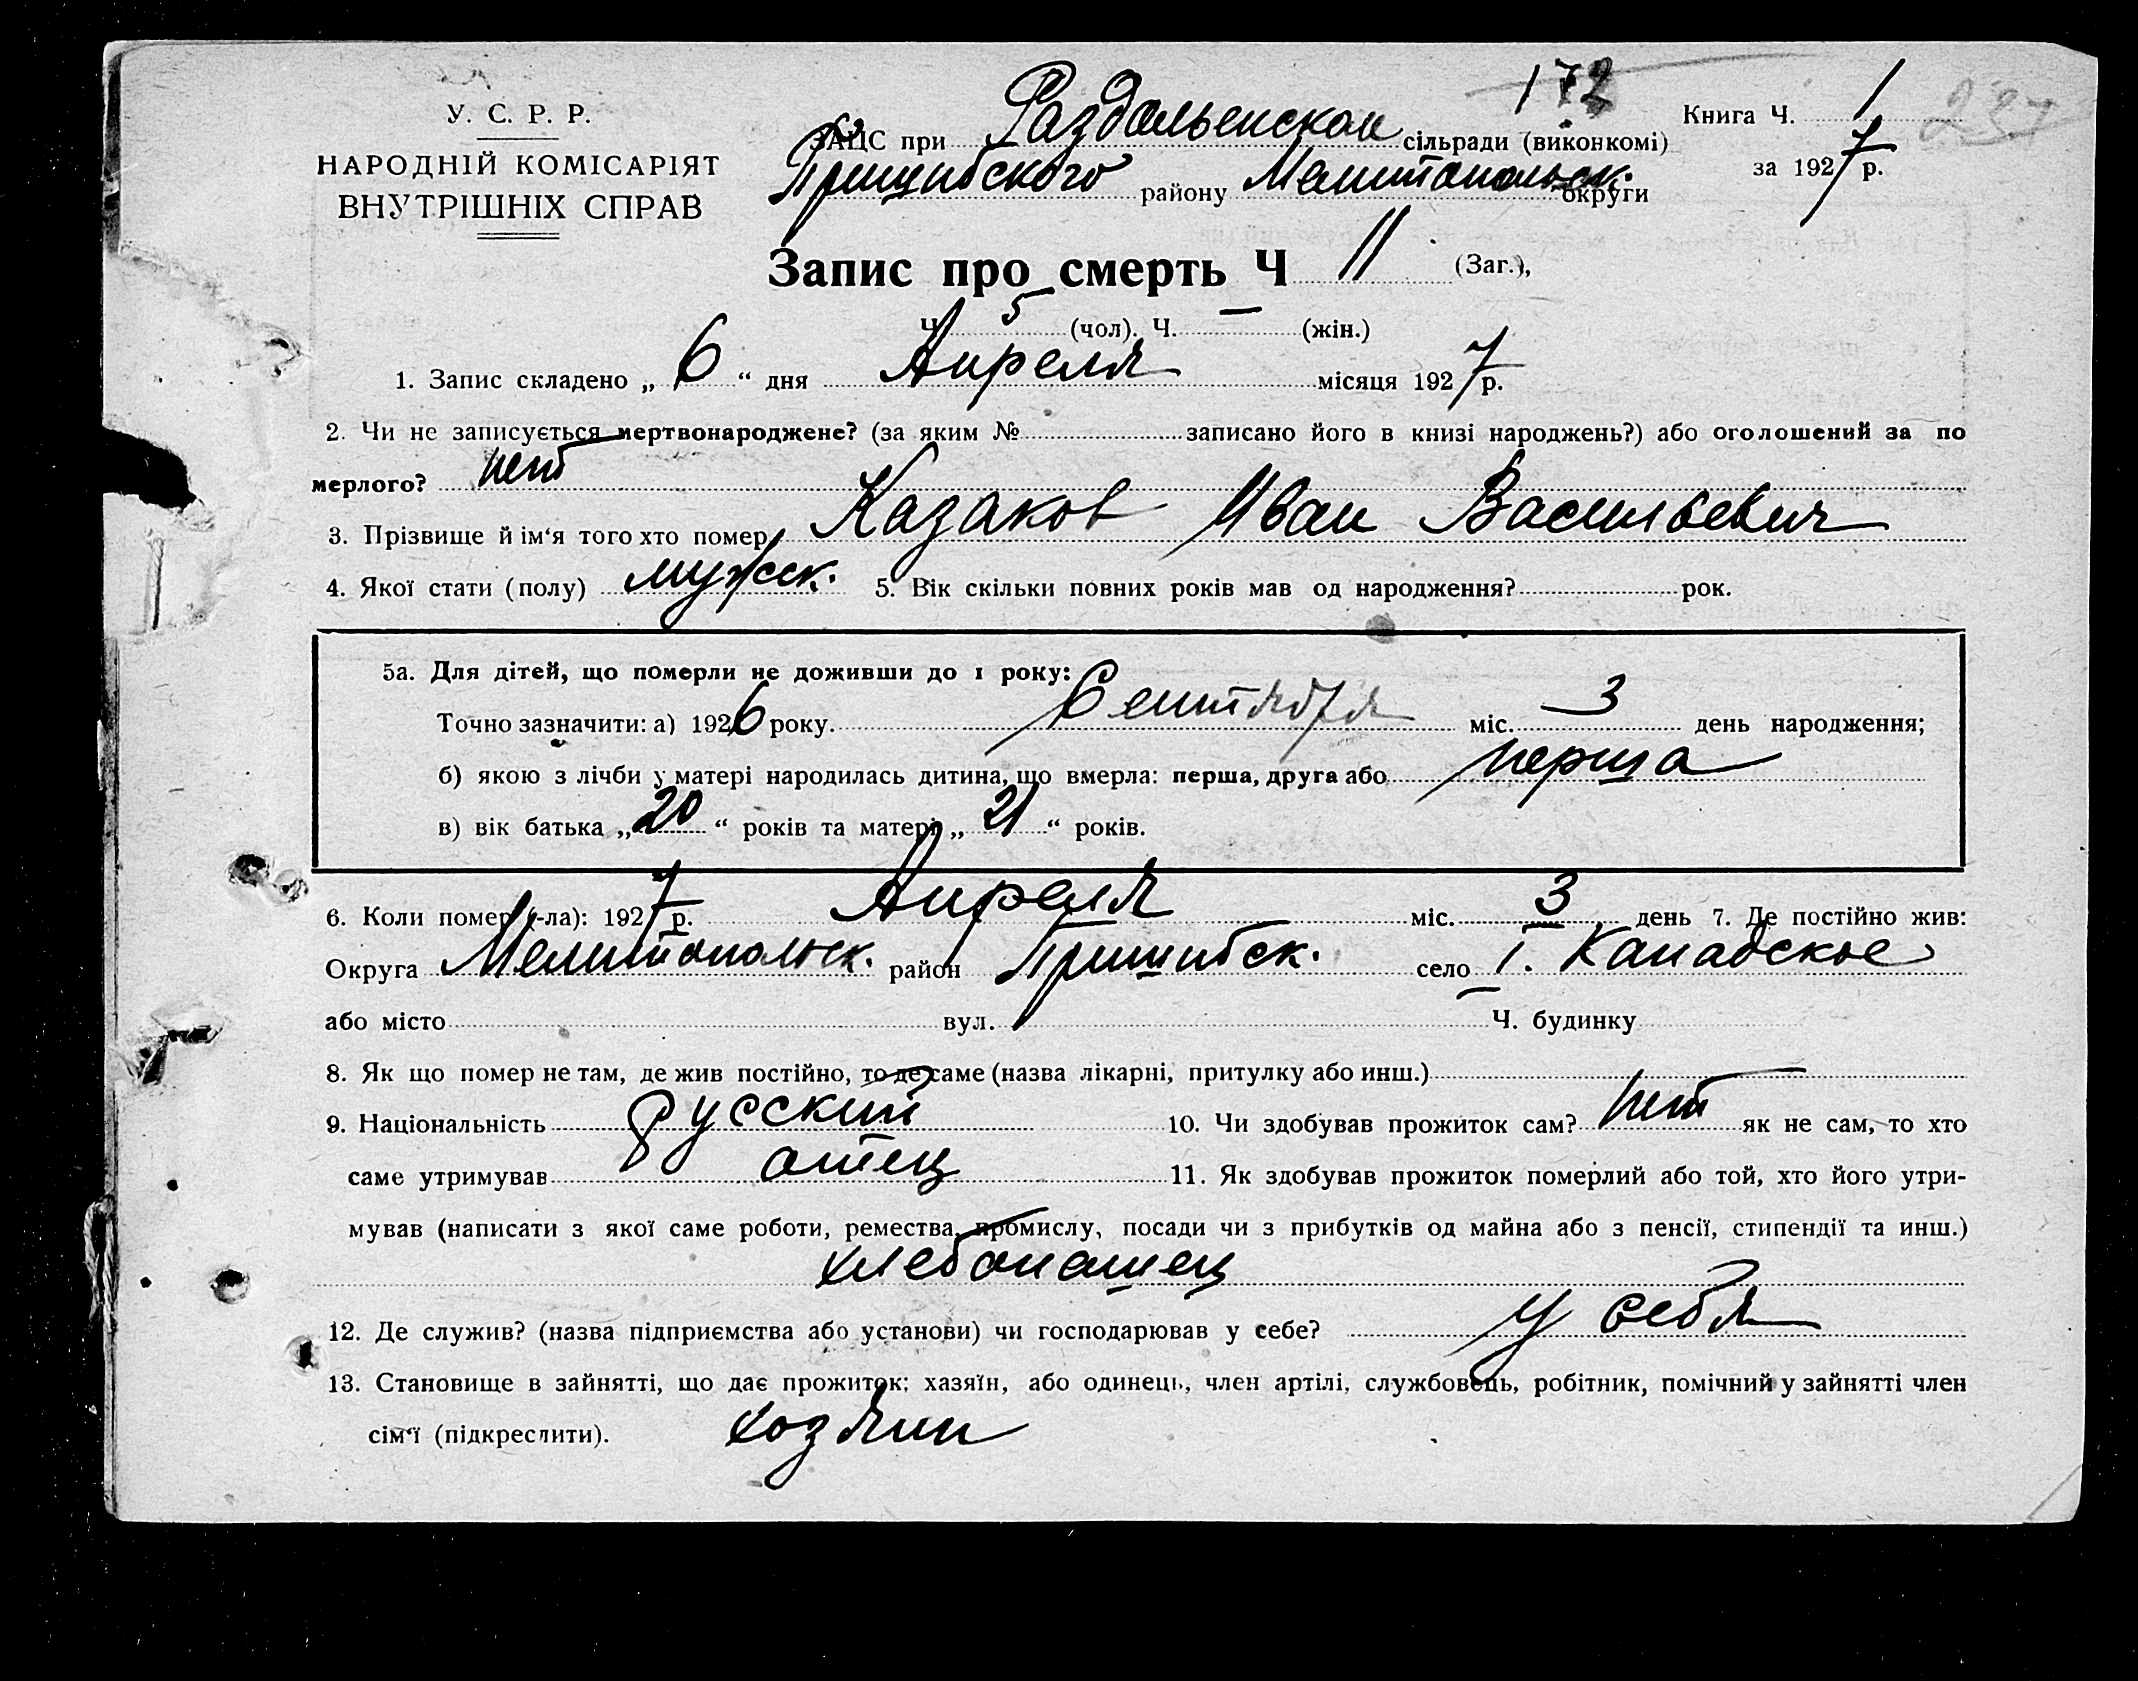 172
У. С. Р. Р.
НАРОДНІЙ КОМІСАРІЯТ
ВНУТРІШНІХ СПРАВ
ЗАЦС при Раздольенском сільради (виконкомі)
Пришибского району Мелитопольск. округи
Книга Ч. 1
237
за 1927 р.
Запис про смерть Ч 11 (Заг.),
Ч. 5 (чол). Ч. — (жін.)
1. Запис складено „ 6 “ дня Апреля місяця 1927 р.
2. Чи не записується мертвонароджене? (за яким № записано його в книзі народжень?) або оголошений за по
мерлого? нет
3. Прізвище й ім‘я того хто помер Казаков Иван Васильевич
4. Якої стати (полу) мужск. 5. Вік скільки повних років мав од народження? рок.
5а. Для дітей, що померли не доживши до 1 року:
Точно зазначити: а) 1926 року. Сентября міс. 3 день народження;
б) якою з лічби у матері народилась дитина, що вмерла: перша, друга або перша
в) вік батька „ 20 “ років та матері „ 21 “ років.
6. Коли помер (-ла): 1927 р. Апреля міс. 3 день 7. Де постійно жив:
Округа Мелитопольск. район Пришибск. село І. Канадское
або місто вул. Ч. будинку
8. Як що помер не там, де жив постійно, то де саме (назва лікарні, притулку або инш.)
9. Національність русский 10. Чи здобував прожиток сам? нет як не сам, то хто
саме утримував отец 11. Як здобував прожиток померлий або той, хто його утри-
мував (написати з якої саме роботи, ремества, промислу, посади чи з прибутків од майна або з пенсії, стипендії та инш.)
хлебопашец
12. Де служив? (назва підприємства або установи) чи господарював у себе? у себя
13. Становище в зайнятті, що дає прожиток: хазяїн, або одинець, член артілі, службовець, робітник, помічний у зайнятті член
сім‘ї (підкреслити). хозяин